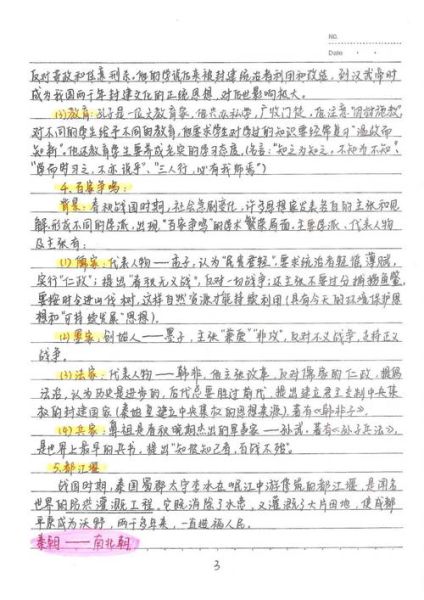 NO.
Date
反对苛政和任意刑杀。他的学说后来被封建统治者利用和改造，到汉武帝时
成为我国两千年封建文化的正统思想，对后世影响极大。
(3)教育：孔子是一位大教育家，他兴办私学，广收门徒，他注意"因材施教"，
对不同的学生给予不同的教育，他要求学生对学过的知识要经常复习"温故而
知新"。他还教育学生要养成老实的学习态度，(名言："知之为知之，不知为不知"、
"学而时习之，不亦说乎"、"三人行，必有我师焉")
4.百家争鸣：
背景：春秋战国时期，社会急剧变化，许多思想家发表各自的主张和见
解形成不同的学派，出现"百家争鸣"的学术繁荣局面，主要学派、代表人物
及主张有：
(1)儒家：代表人物——孟子，认为"民贵君轻"，要求统治者轻徭薄赋，
实行"仁政"；提出"春秋无义战"，反对一切战争；还主张不要过分捕捞鱼鳖，
要按时令进山伐木，这样自然资源才能持续利用(具有今天的环境保护思
想和"可持续发展"思想)。
(2)墨家：创始人——墨子，主张"兼爱""非攻"，反对不义战争，支持正义
战争。
(3)法家：代表人物——韩非，他主张改革，反对儒家的仁政，提倡
法治，认为历史是进步的，后代总要胜过前代，提出建立君主专制中央集
权的封建国家(秦始皇建立中央集权的思想来源)，著有《韩非子》。
(4)兵家：鼻祖是春秋晚期杰出的军事家——孙武，著有《孙子兵法》，
是世界上最早的兵书，提出"知彼知己者，百战不殆"。
5.都江堰
战国时期，秦国蜀郡太守李冰在岷江中游修筑的都江堰，是闻名
世界的防洪灌溉工程。它既消除了水患，又灌溉了大片田地，使成都
平原成为沃野，两千多年来，一直造福人民。
秦朝——南北朝
3